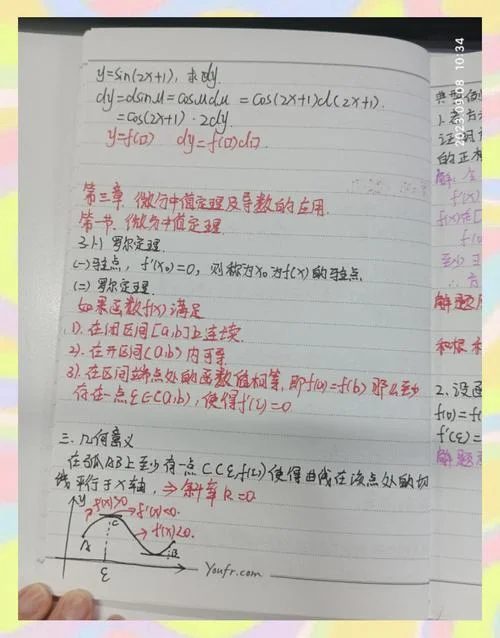 y=sin(2x+1), 求dy.
dy=dsinu=cosudu = cos(2x+1)d(2x+1).
=cos(2x+1)·2dy.
y=f(□) dy=f(□)d□.
第三章、微分中值定理及导数的应用.
第一节、微分中值定理
3.1.1 罗尔定理.
(一)驻点, f'(x₀)=0, 则称为x₀为f(x)的驻点
(二)罗尔定理.
如果函数f(x)满足
1). 在闭区间[a,b]上连续.
2). 在开区间(a,b)内可导.
3). 在区间端点处的函数值相等, 即f(a)=f(b) 那么至少
存在一点ξ∈(a,b), 使得f'(ξ)=0
三、几何意义
在弧AB上至少有一点C(ξ,f(ξ))使得曲线在该点处的切
线平行于X轴, ⇒斜率k=0
y
f'(x)>0
f'(x)<0.
C
f'(x)<0.
A
B
ξ
Youfr.com
2023 09 08 10:34
典型例
的正根
f'(x)
f(x)在[
至少
解题
和根
2、设函
f(0)=f(
f'(ξ)=
解题